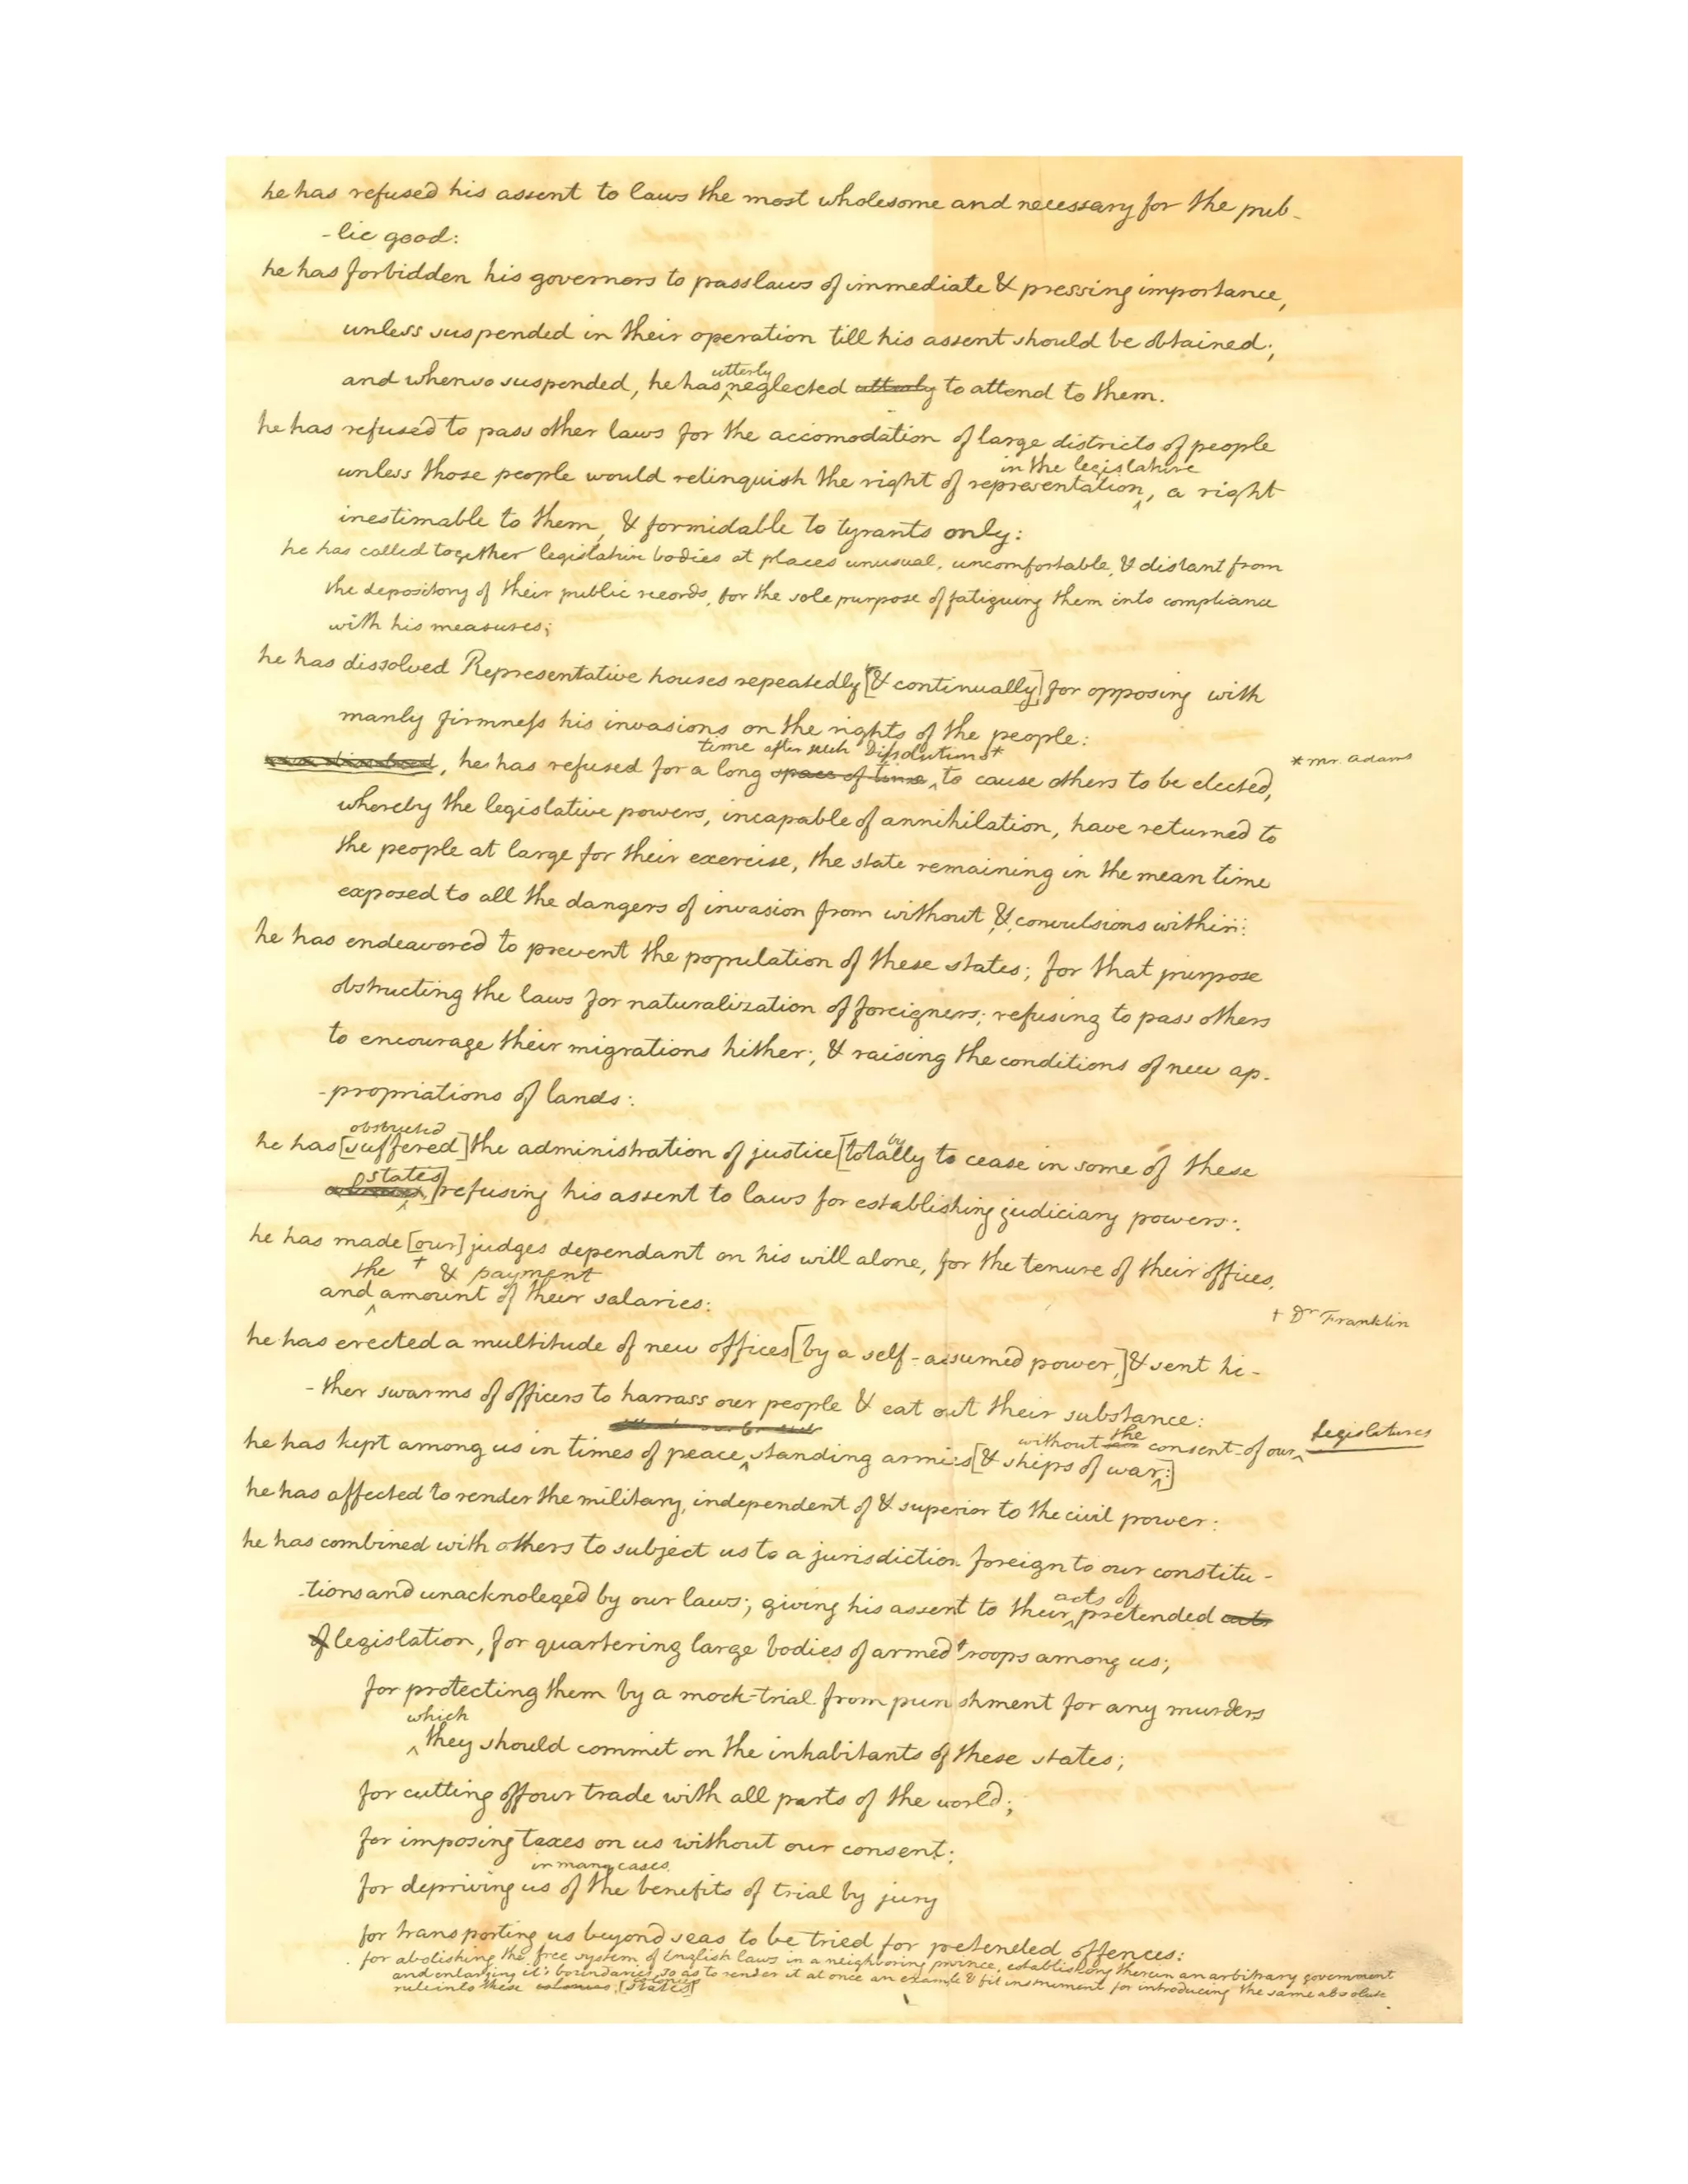 he has refused his assent to laws the most wholesome and necessary for the pub-
-lic good:
he has forbidden his governors to pass laws of immediate & pressing importance,
unless suspended in their operation till his assent should be obtained;
utterly
and when so suspended, he has ^ neglected utterly to attend to them.
he has refused to pass other laws for the accomodation of large districts of people
in the legislature
unless those people would relinquish the right of representation ^, a right
inestimable to them, & formidable to tyrants only:
he has called together legislative bodies at places unusual, uncomfortable, & distant from
the depository of their public records, for the sole purpose of fatiguing them into compliance
with his measures;
he has dissolved Representative houses repeatedly [& continually] for opposing with
manly firmness his invasions on the rights of the people:
time after such Dissolutions*
, he has refused for a long space of time ^ to cause others to be elected,
* Mr. Adams
whereby the legislative powers, incapable of annihilation, have returned to
the people at large for their exercise, the state remaining in the mean time
exposed to all the dangers of invasion from without & convulsions within:
he has endeavored to prevent the population of these states; for that purpose
obstructing the laws for naturalization of foreigners; refusing to pass others
to encourage their migrations hither; & raising the conditions of new ap-
-propriations of lands:
obstructed by
he has [suffered] the administration of justice [totally to cease in some of these
states]
^ refusing his assent to laws for establishing judiciary powers:
he has made [our] judges dependant on his will alone, for the tenure of their offices,
the + & payment
and ^ amount of their salaries:
+ Dr Franklin
he has erected a multitude of new offices [by a self-assumed power,] & sent hi-
-ther swarms of officers to harrass our people & eat out their substance:
without the consent of our ^ legislatures
he has kept among us in times of peace ^ standing armies [& ships of war ^:]
he has affected to render the military, independent of & superior to the civil power:
he has combined with others to subject us to a jurisdiction foreign to our constitu-
acts of
-tions and unacknoleged by our laws; giving his assent to their ^ pretended acts
of legislation, for quartering large bodies of armed troops among us;
for protecting them by a mock-trial from punishment for any murders
which
^ they should commit on the inhabitants of these states;
for cutting off our trade with all parts of the world;
for imposing taxes on us without our consent;
in many cases
for depriving us of the benefits of trial by jury
for transporting us beyond seas to be tried for pretended offences:
for abolishing the free system of English laws in a neighboring province, establishing therein an arbitrary government
and enlarging it's boundaries so as to render it at once an example & fit instrument for introducing the same absolute
rule into these colonies [states]